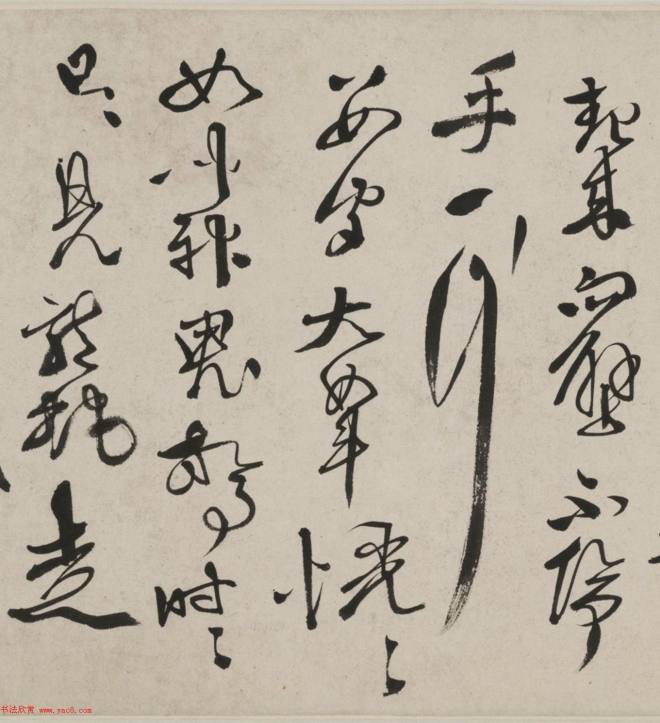 起來向壁不停
手一行
數字大如斗恍〻
如聞神鬼驚時〻
只見龍蛇走
书法欣赏 www.yac8.com